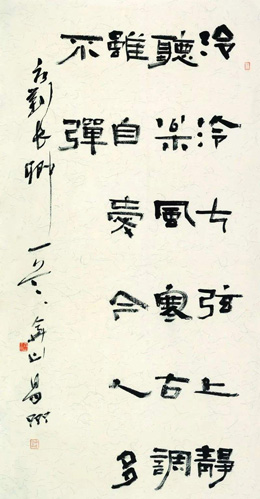 泠泠七弦上靜
聽松風寒古調
雖自愛今人多
不彈
劉長卿